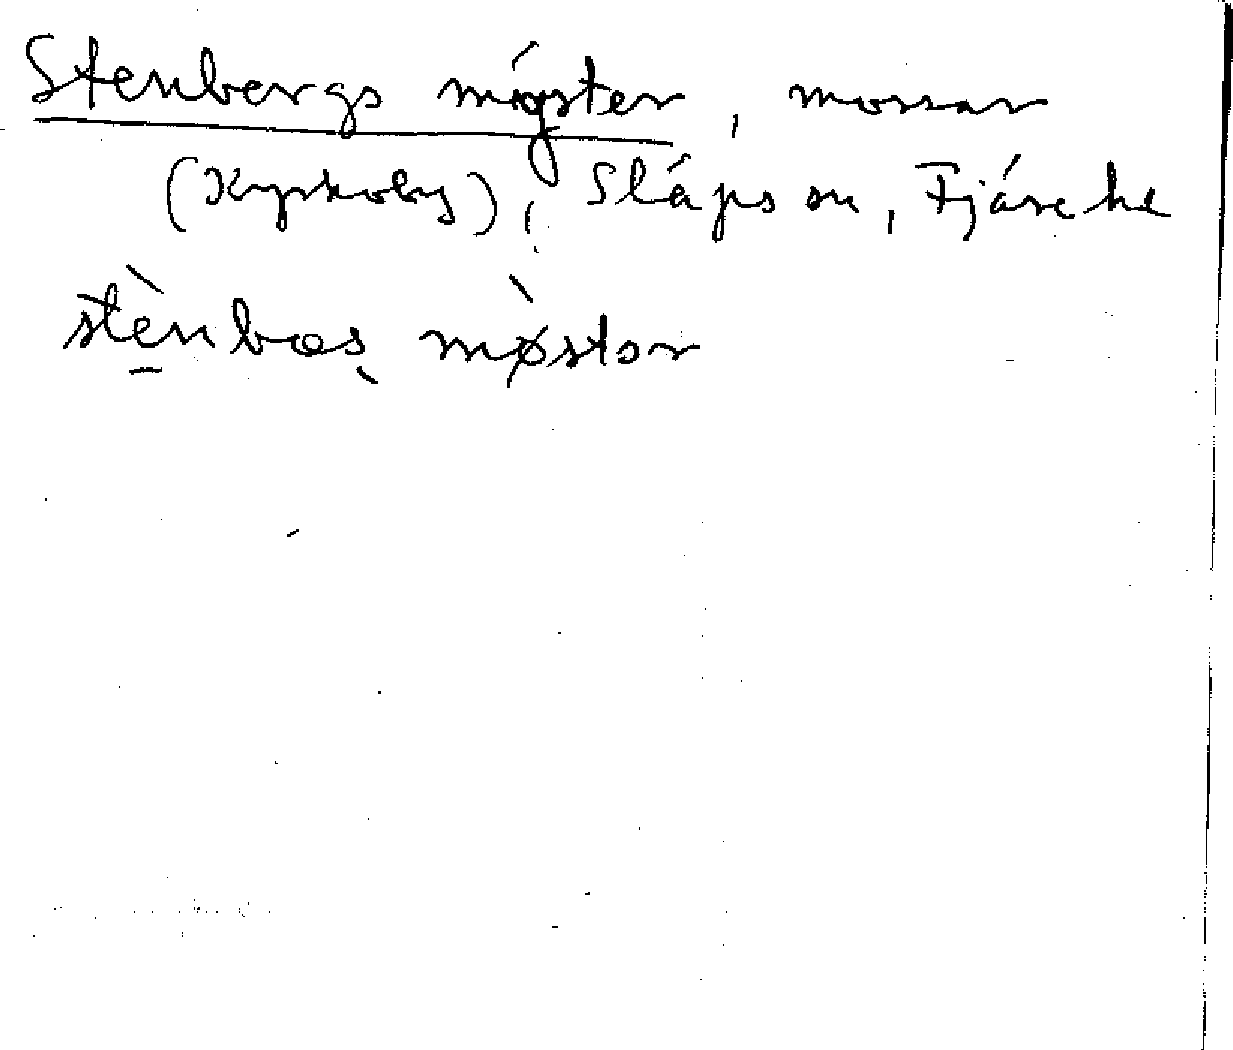 Stenbergs mýster, mossar
(Kyrkoby), Släps sn, Fjäre hd
stènbæs̀ mø̀stər